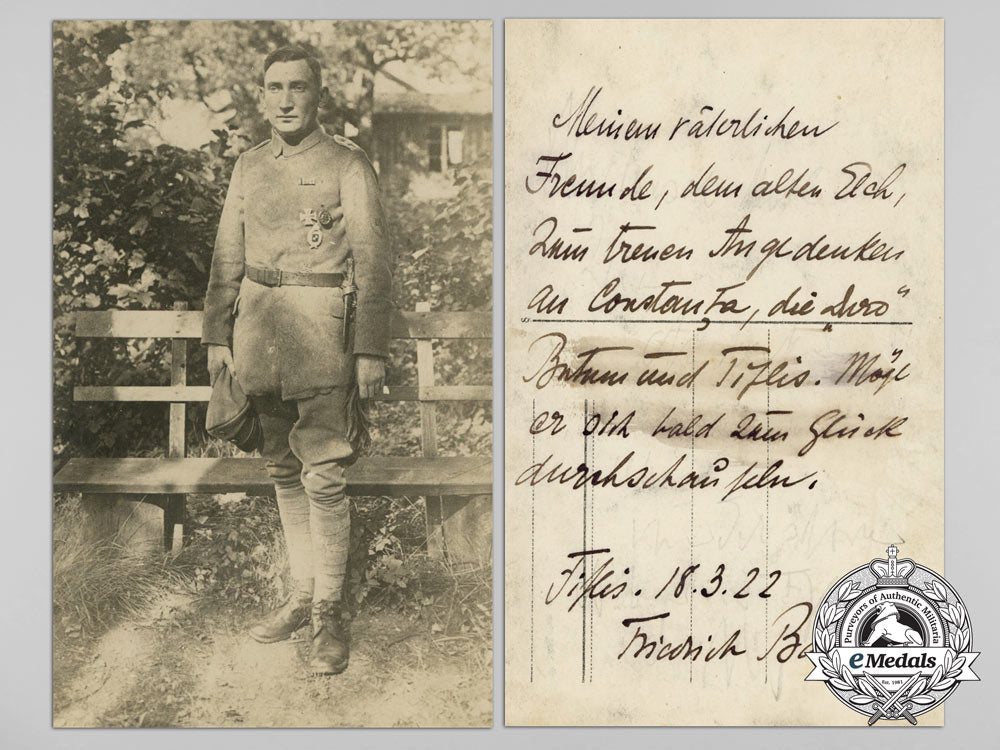 Meinem väterlichen
Freunde, dem alten Elch,
zum treuen Angedenken
an Constanţa, die
Batum und Tiflis. Möge
er sich bald zum Glück
durchschaufeln.
Tiflis. 18.3.22
Friedrich
Purveyors of Authentic Militaria
eMedals
Est. 1981